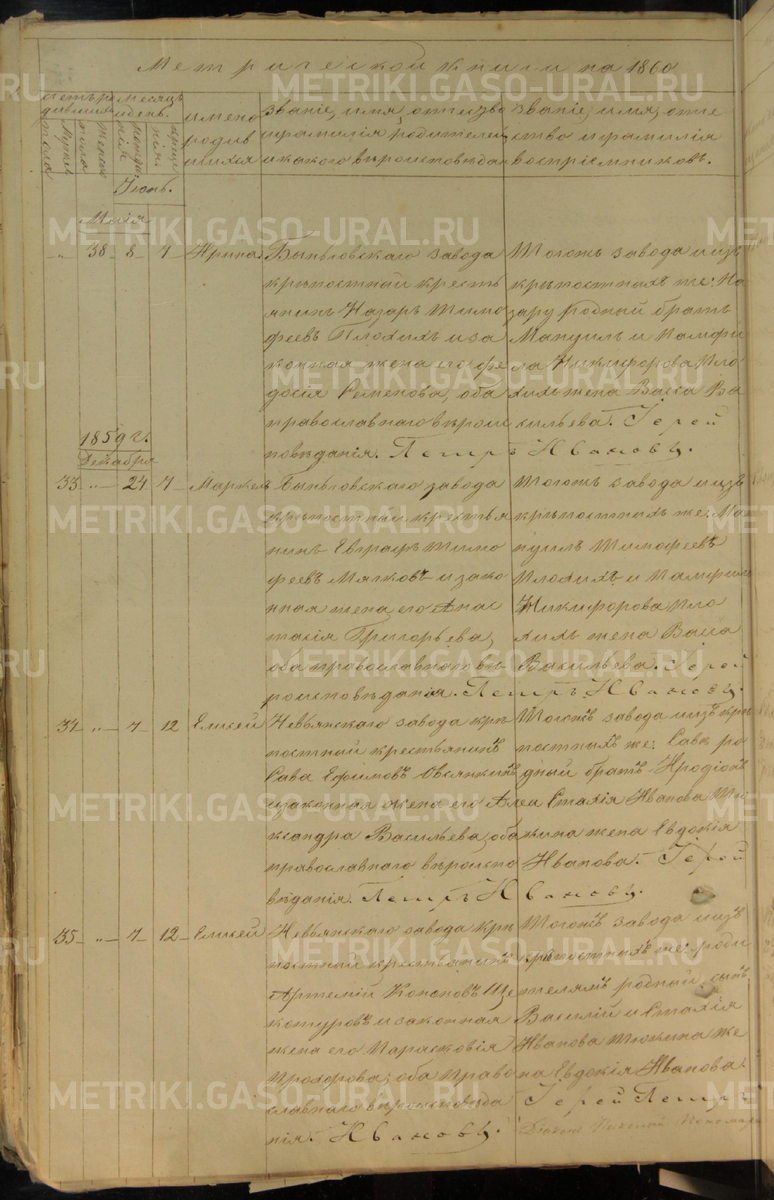 Метрической книги на 1860
Счетъ родившихся
Мужска пола
Женска пола
Месяцъ и день.
рожденія
крещенія
имена родившихся
Званіе, имя, отчество и фамилія родителей и какого вѣроисповѣданія
Званіе, имя, отчество и фамилія воспріемниковъ.
Іюнь.
Маія
„ 38 8 7 Ирина
Быньговскаго завода
крѣпостной кресть
янинъ Назаръ Тимо
феевъ Плохихъ и за
конная жена его Фе
досія Семенова, оба
православнаго вѣроис
повѣданія. Петръ Ивановъ.
Тогожъ завода изъ
крѣпостныхъ же: На
зару родный братъ
Мануилъ и Памфи
ла Никифорова Пло
хихъ жена Васса Ва
сильева. Іерей
1859 г.
Декабря
33 „ 24 7 Маркелъ
Быньговскаго завода
крѣпостный крестья
нинъ Евграфъ Тимо
феевъ Мягковъ и зако
нная жена его Анас
тасія Григорьева,
оба православнаго вѣ
роисповѣданія. Петръ Ивановъ.
Тогожъ завода изъ
крѣпостныхъ же: Ма
нуилъ Тимофеевъ
Плохихъ и Памфила
Никифорова Пло
хихъ жена Васса
Васильева. Іерей
34 „ 7 12 Елисей
Невьянскаго завода крѣ
постной крестьянинъ
Сава Ефимовъ Овсянкинъ
и законная жена его Але
ксандра Васильева, оба
православнаго вѣроиспо
вѣданія. Петръ Ивановъ.
Тогожъ завода изъ крѣ
постныхъ же: Савѣ ро
дный братъ Иродіонъ
и Стахія Иванова Тю
кина жена Евдокія
Иванова. Іерей
35 „ 7 12 Елисей
Невьянскаго завода крѣ
постной крестьянинъ
Артемій Кононовъ Ще
котуровъ и законная
жена его Парасковія
Прохорова, оба право
славнаго вѣроисповѣда
нія. Ивановъ.
Тогожъ завода изъ
крѣпостныхъ же: роди
телямъ родной сынъ
Василій и Стахія
Иванова Тюкина же
на Евдокія Иванова.
Іерей Петръ
METRIKI.GASO-URAL.RU